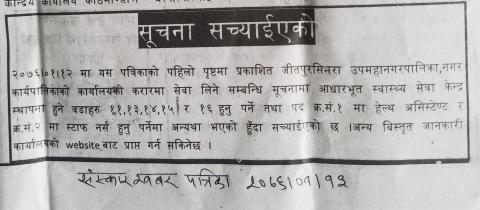 केन्द्रिय कार्यालय काठमाण्डौ
सूचना सच्याईएको
२०७६।०१।१२ मा यस पत्रिकाको पहिलो पृष्ठमा प्रकाशित जीतपुरसिमरा उपमहानगरपालिका,नगर
कार्यपालिकाको कार्यालयको करारमा सेवा लिने सम्बन्धि सूचनामा आधारभूत स्वास्थ्य सेवा केन्द्र
स्थापना हुने वडाहरु ११,१३,१४,१५ र १६ हुनु पर्ने तथा पद क्र.सं.१ मा हेल्थ असिस्टेण्ट र
क्र.सं.२ मा स्टाफ नर्स हुनु पर्नेमा अन्यथा भएको हुँदा सच्याईएको छ ।अन्य विस्तृत जानकारी
कार्यालयको website बाट प्राप्त गर्न सकिनेछ ।
संस्कार खबर पत्रिका २०७६।०१।१३